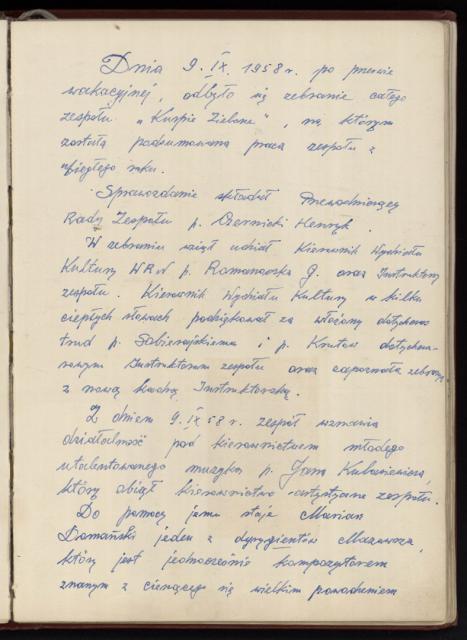 Dnia 9.IX.1958 r. po przerwie
wakacyjnej, odbyło się zebranie całego
zespołu „Kurpie Zielone", na którym
została podsumowana praca zespołu z
ubiegłego roku.
Sprawozdanie składał Przewodniczący
Rady Zespołu p. Czernicki Henryk.
W zebraniu wziął udział Kierownik Wydziału
Kultury WRN p. Romanowska G. oraz Instruktorzy
zespołu. Kierownik Wydziału Kultury w kilku
ciepłych słowach podziękował za włożony dotychczas
trud p. Sobierajskiemu i p. dotychcza-
sowym Instruktorom zespołu oraz zapoznała zebranych
z nową kadrą Instruktorską.
Z dniem 9.IX 58 r. zespół wznawia
działalność pod kierownictwem młodego
utalentowanego muzyka p. Jana Kubaniewicza,
który objął kierownictwo artystyczne zespołu.
Do pomocy jemu staje Marian
Domański jeden z dyrygentów Mazowsza,
który jest jednocześnie kompozytorem
znanym z cieszącego się wielkim powodzeniem